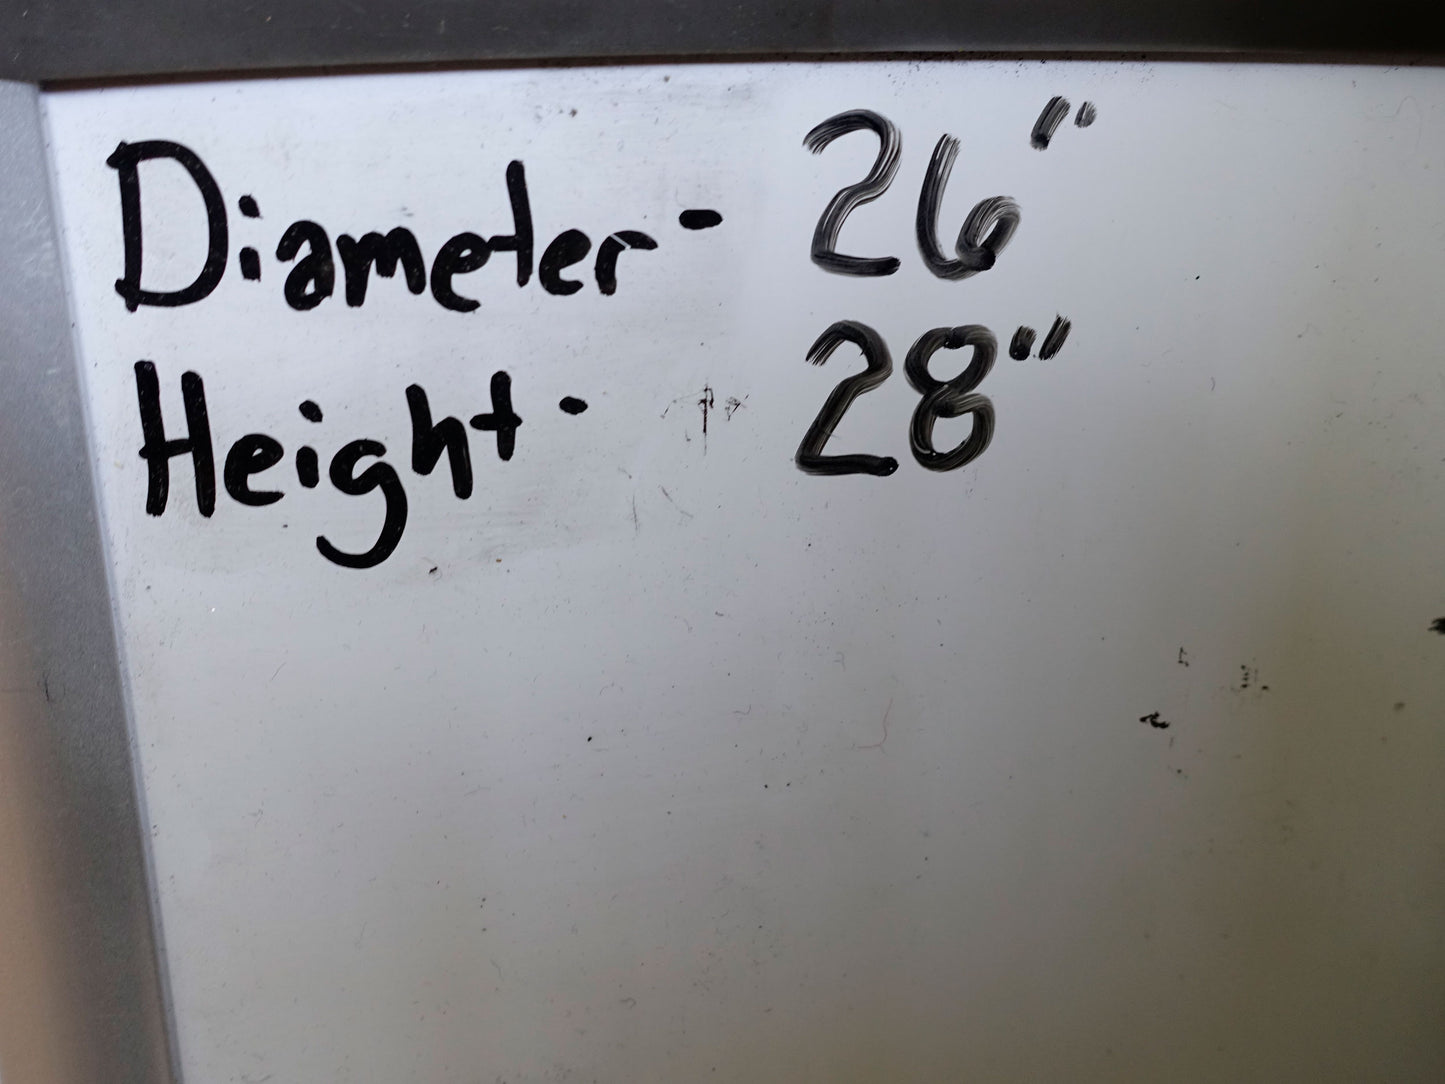 Diameter - 26"
Height - 28"